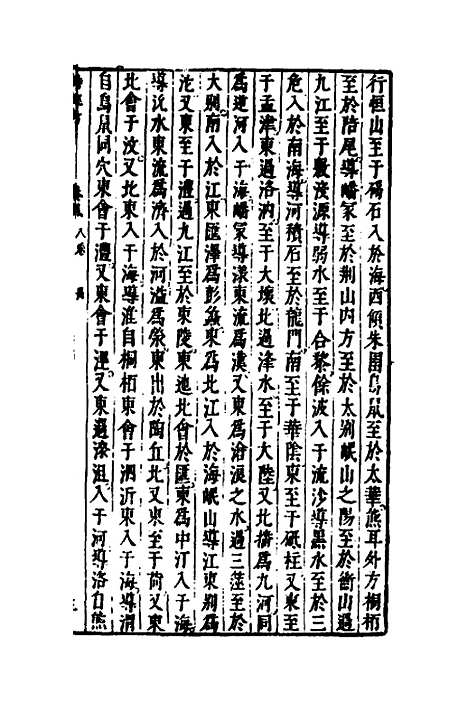 行恒山至于碣石入於海西傾朱圉鳥鼠至於太華熊耳外方桐栢
至於陪尾導嶓冢至於荆山内方至於大别岷山之陽至於衡山過
九江至于敷淺源導弱水至于合黎餘波入于流沙導黑水至於三
危入於南海導河積石至於龍門南至于華陰東至于砥柱又東至
于孟津東過洛汭至于大壞北過洚水至于大陸又北播爲九河同
爲逆河入于海嶓冢導漾東流爲漢又東爲滄浪之水過三澨至於
大别南入於江東匯澤爲彭蠡東爲北江入於海岷山導江東别爲
沱又東至于澧過九江至於東陵東迆北會於匯東爲中江入于海
導沇水東流爲濟入於河溢爲滎東出於陶丘北又東至于荷又東
北會于汶又北東入于海導淮自桐栢東會于泗沂東入于海導渭
自鳥鼠同穴東會于灃又東會于涇又東過漆沮入于河導洛自熊
八卷